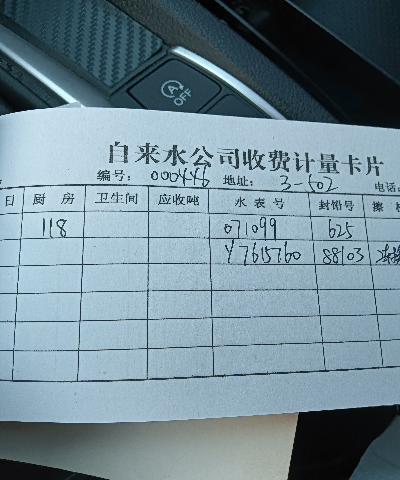 A OFF
自来水公司收费计量卡片
编号: 000446 地址: 3-502 电话:
日 厨房 卫生间 应收吨 水表号 封铅号
118 071099 625
Y7615760 88103